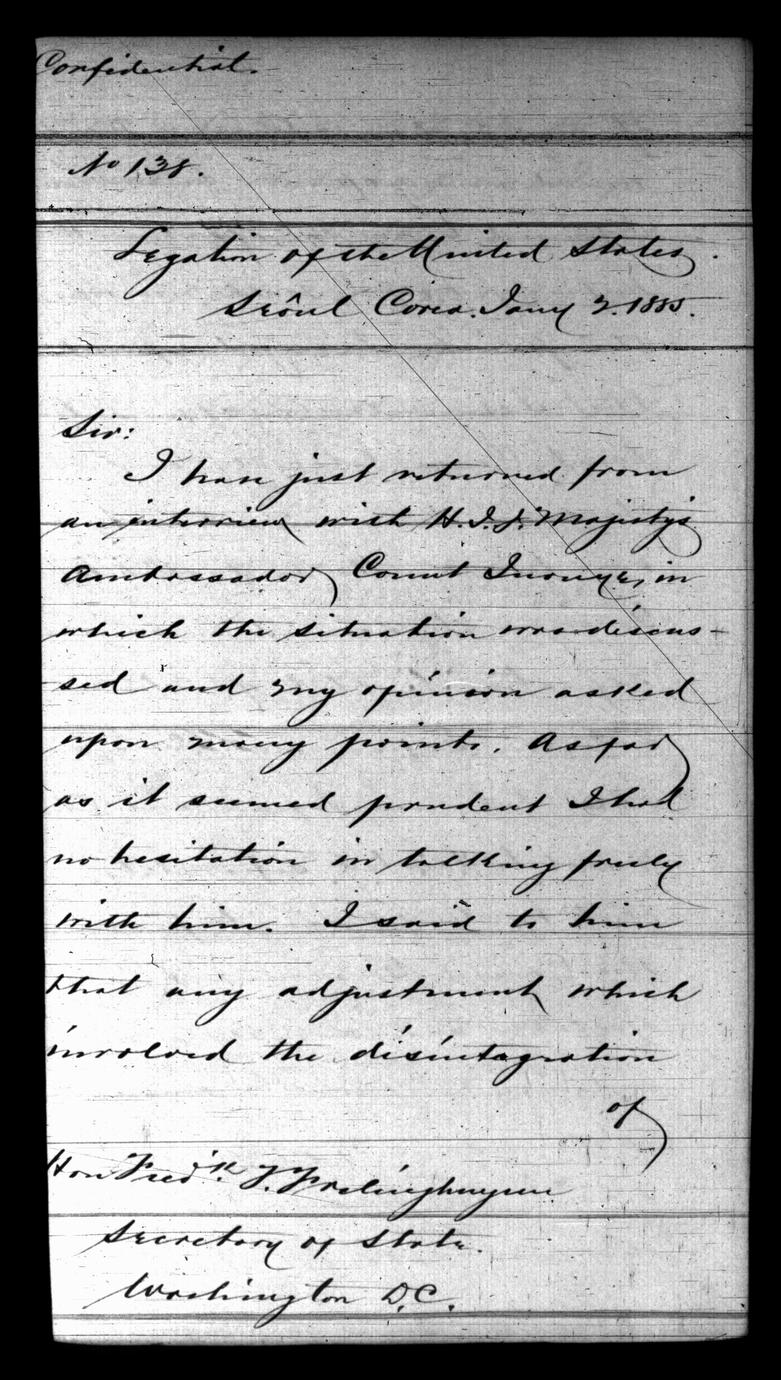 Confidential.
No 138.
Legation of the United States.
Seôul Corea. Jany 2. 1885.
Sir:
I have just returned from
an interview with H.I.J. Majesty's
Ambassador Count Inouye, in
which the situation was discus-
sed and my opinion asked
upon many points. As far
as it seemed prudent I had
no hesitation in talking freely
with him. I said to him
that any adjustment which
involved the disintegration
of
Hon Fred'k T. Frelinghuysen
Secretary of State.
Washington D.C.